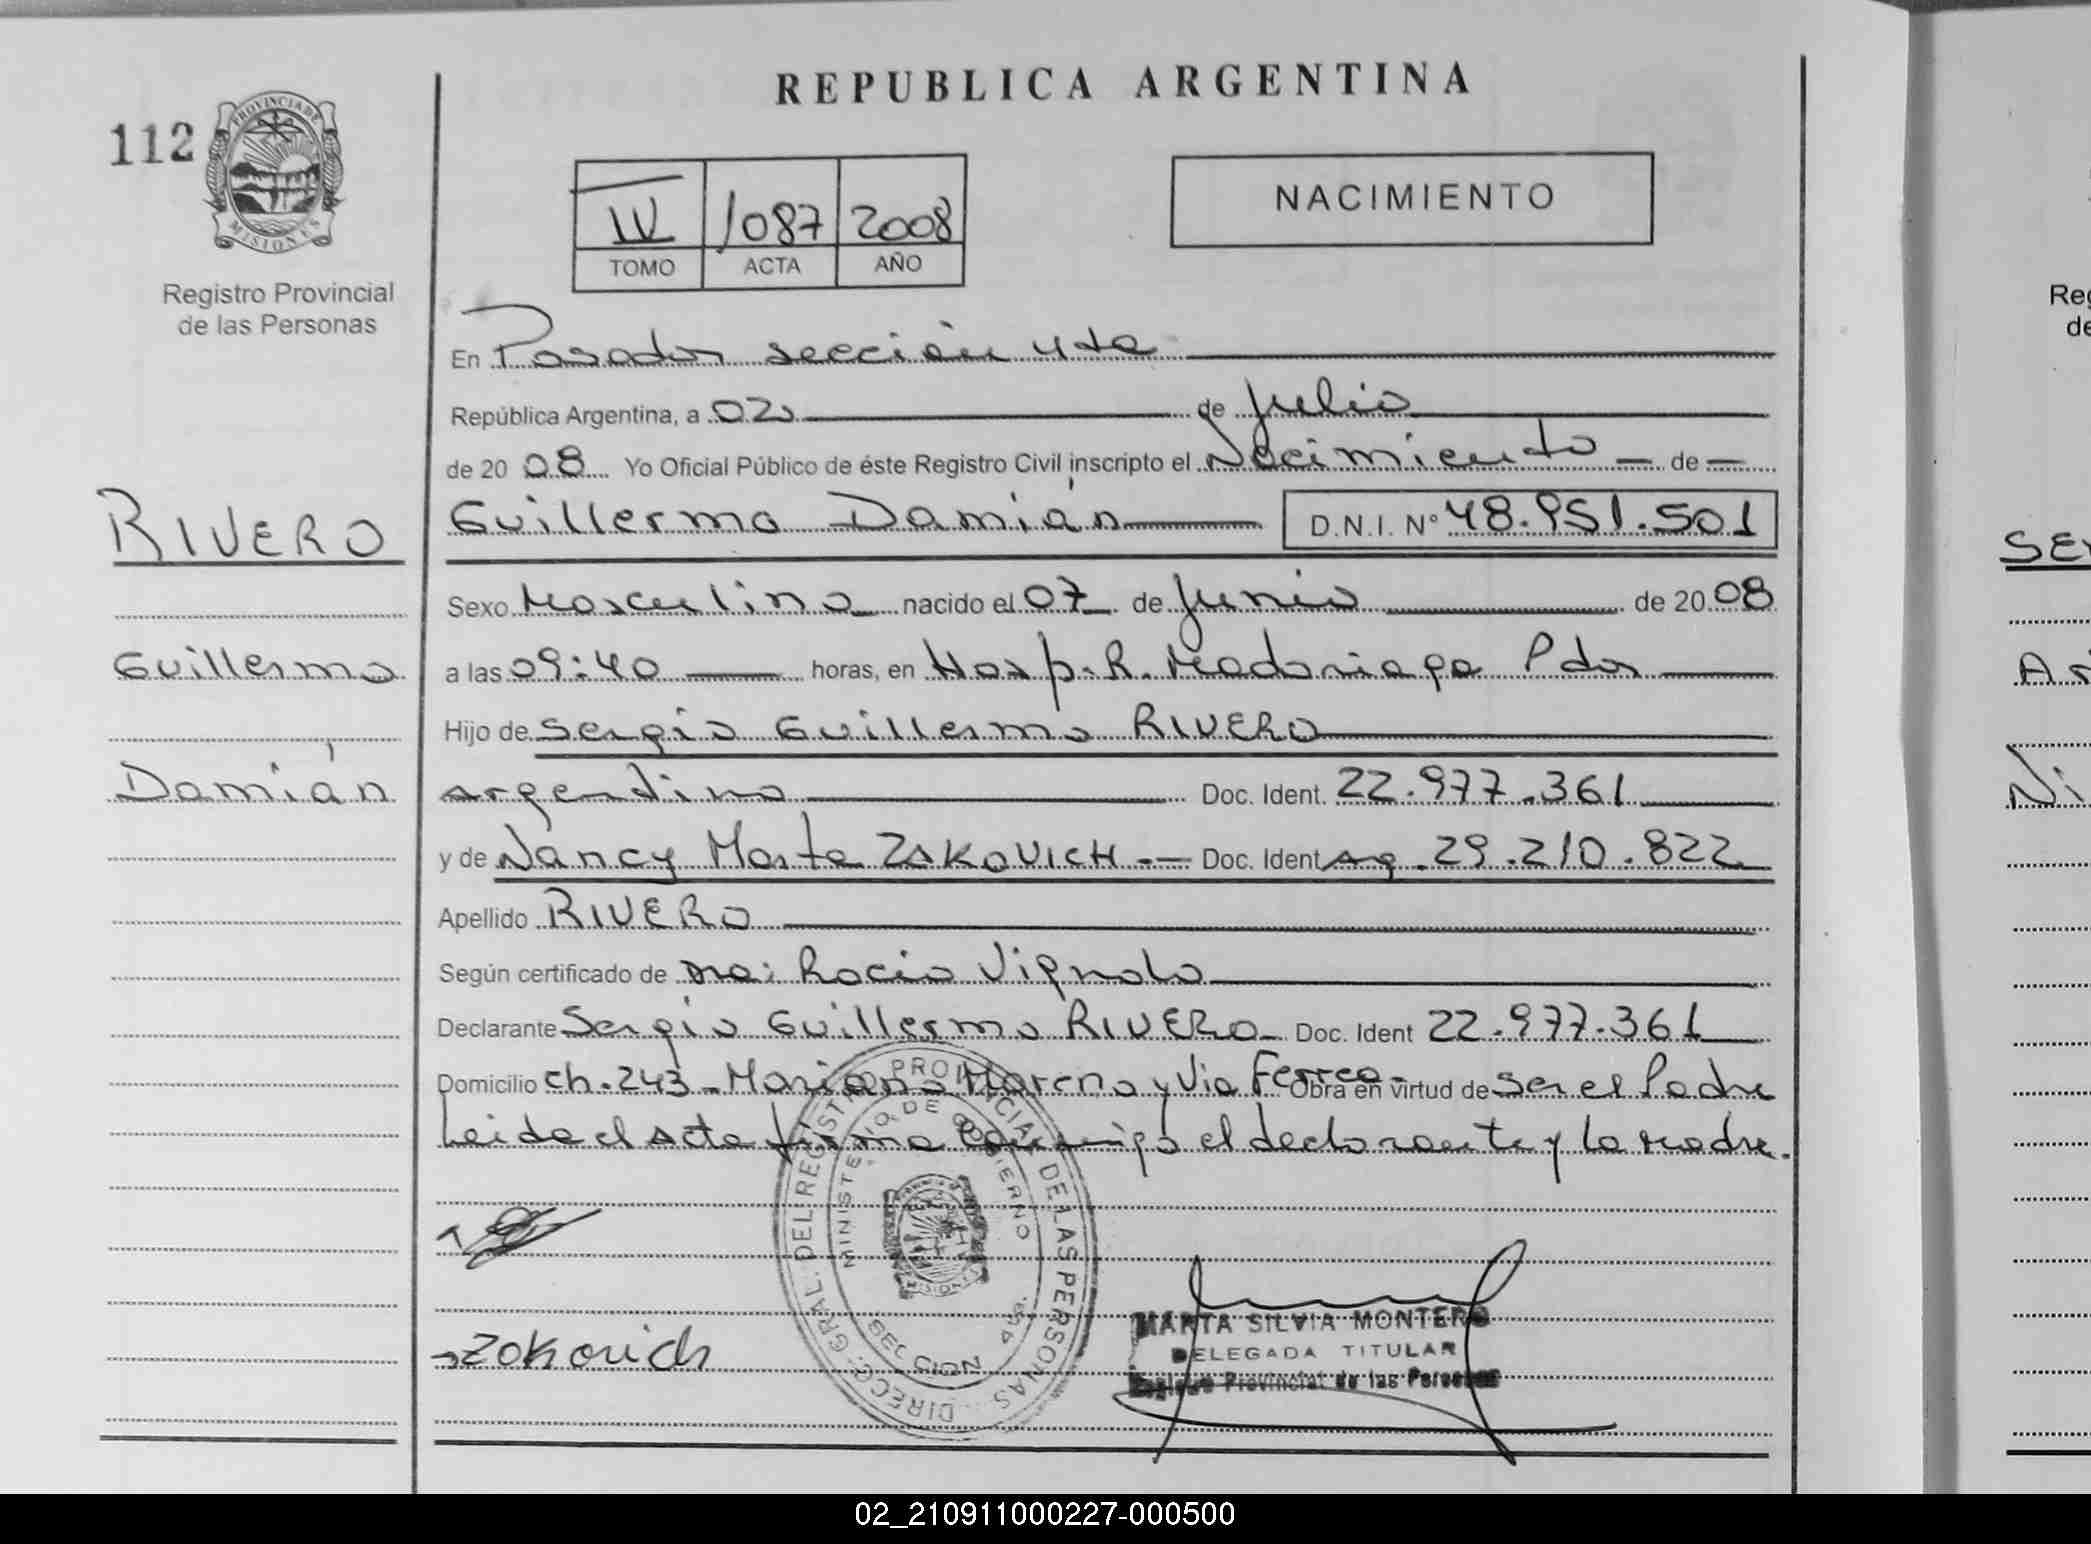 REPUBLICA ARGENTINA
112
PROVINCIA DE
MISIONES
Registro Provincial
de las Personas
IV 1087 2008
TOMO ACTA AÑO
NACIMIENTO
En Posadas sección 4ta
República Argentina, a 02 de Julio
de 2008 Yo Oficial Público de éste Registro Civil inscripto el Nacimiento de
RIVERO
Guillermo Damián D.N.I. N° 48.951.501
Sexo Masculino nacido el 07 de Junio de 2008
Guillermo
a las 09:40 horas, en Hosp. R. Madariaga Pdas
Hijo de Sergio Guillermo RIVERO
Damián
argentino Doc. Ident. 22.977.361
y de Nancy Marta ZAKOVICH Doc. Ident Arg. 29.210.822
Apellido RIVERO
Según certificado de Dra: Rocio Vignolo
Declarante Sergio Guillermo RIVERO Doc. Ident 22.977.361
Domicilio Ch. 243 - Mariano Moreno y Via Ferrea - Obra en virtud de ser el Padre
Leida el acta firma conmigo el declarante y la madre.
DIRECC. GRAL. DEL REGISTRO PROVINCIAL DE LAS PERSONAS
MINISTERIO DE GOBIERNO
MISIONES
Zakovich
MARTA SILVIA MONTERO
DELEGADA TITULAR
Registro Provincial de las Personas
Reg
de
SE
Ar
Ni
02_210911000227-000500